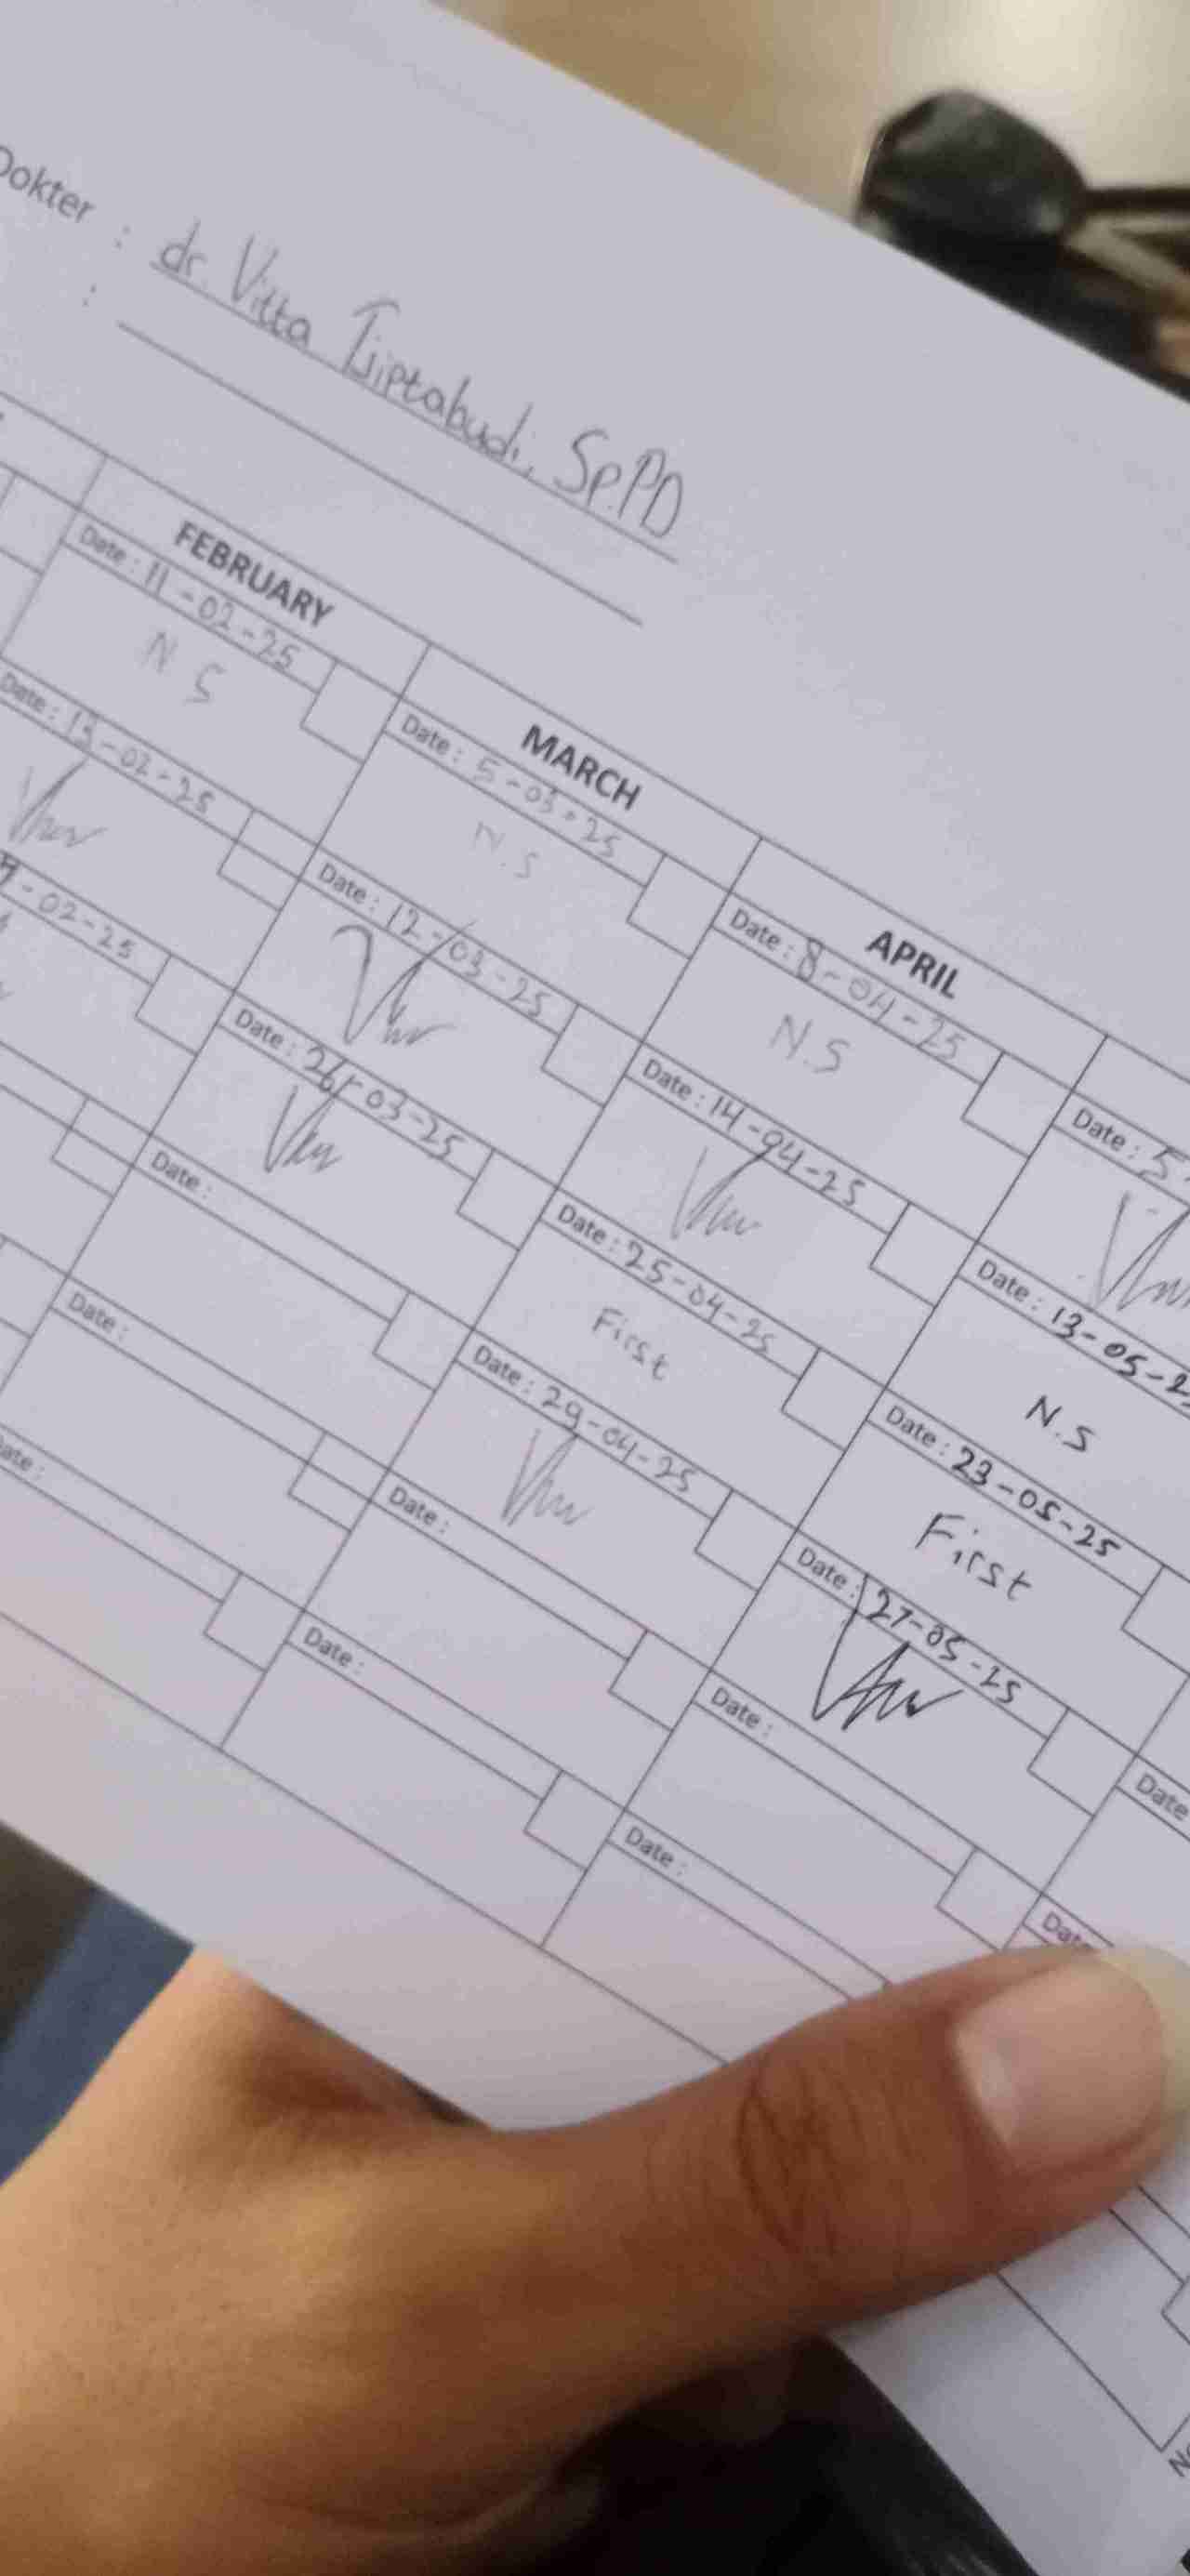 Dokter : dr. Vitta Tjiptabudi, Sp.PD
:
FEBRUARY
Date : 11-02-25
N S
Date : 13-02-25
-02-25
MARCH
Date : 5-03-25
N.S
Date : 12-03-25
Date : 26-03-25
Date :
Date :
Date :
APRIL
Date : 8-04-25
N.S
Date : 14-04-25
Date : 25-04-25
First
Date : 29-04-25
Date :
Date :
Date : 5-
Date : 13-05-2
N.S
Date : 23-05-25
First
Date : 27-05-25
Date :
Date :
Date